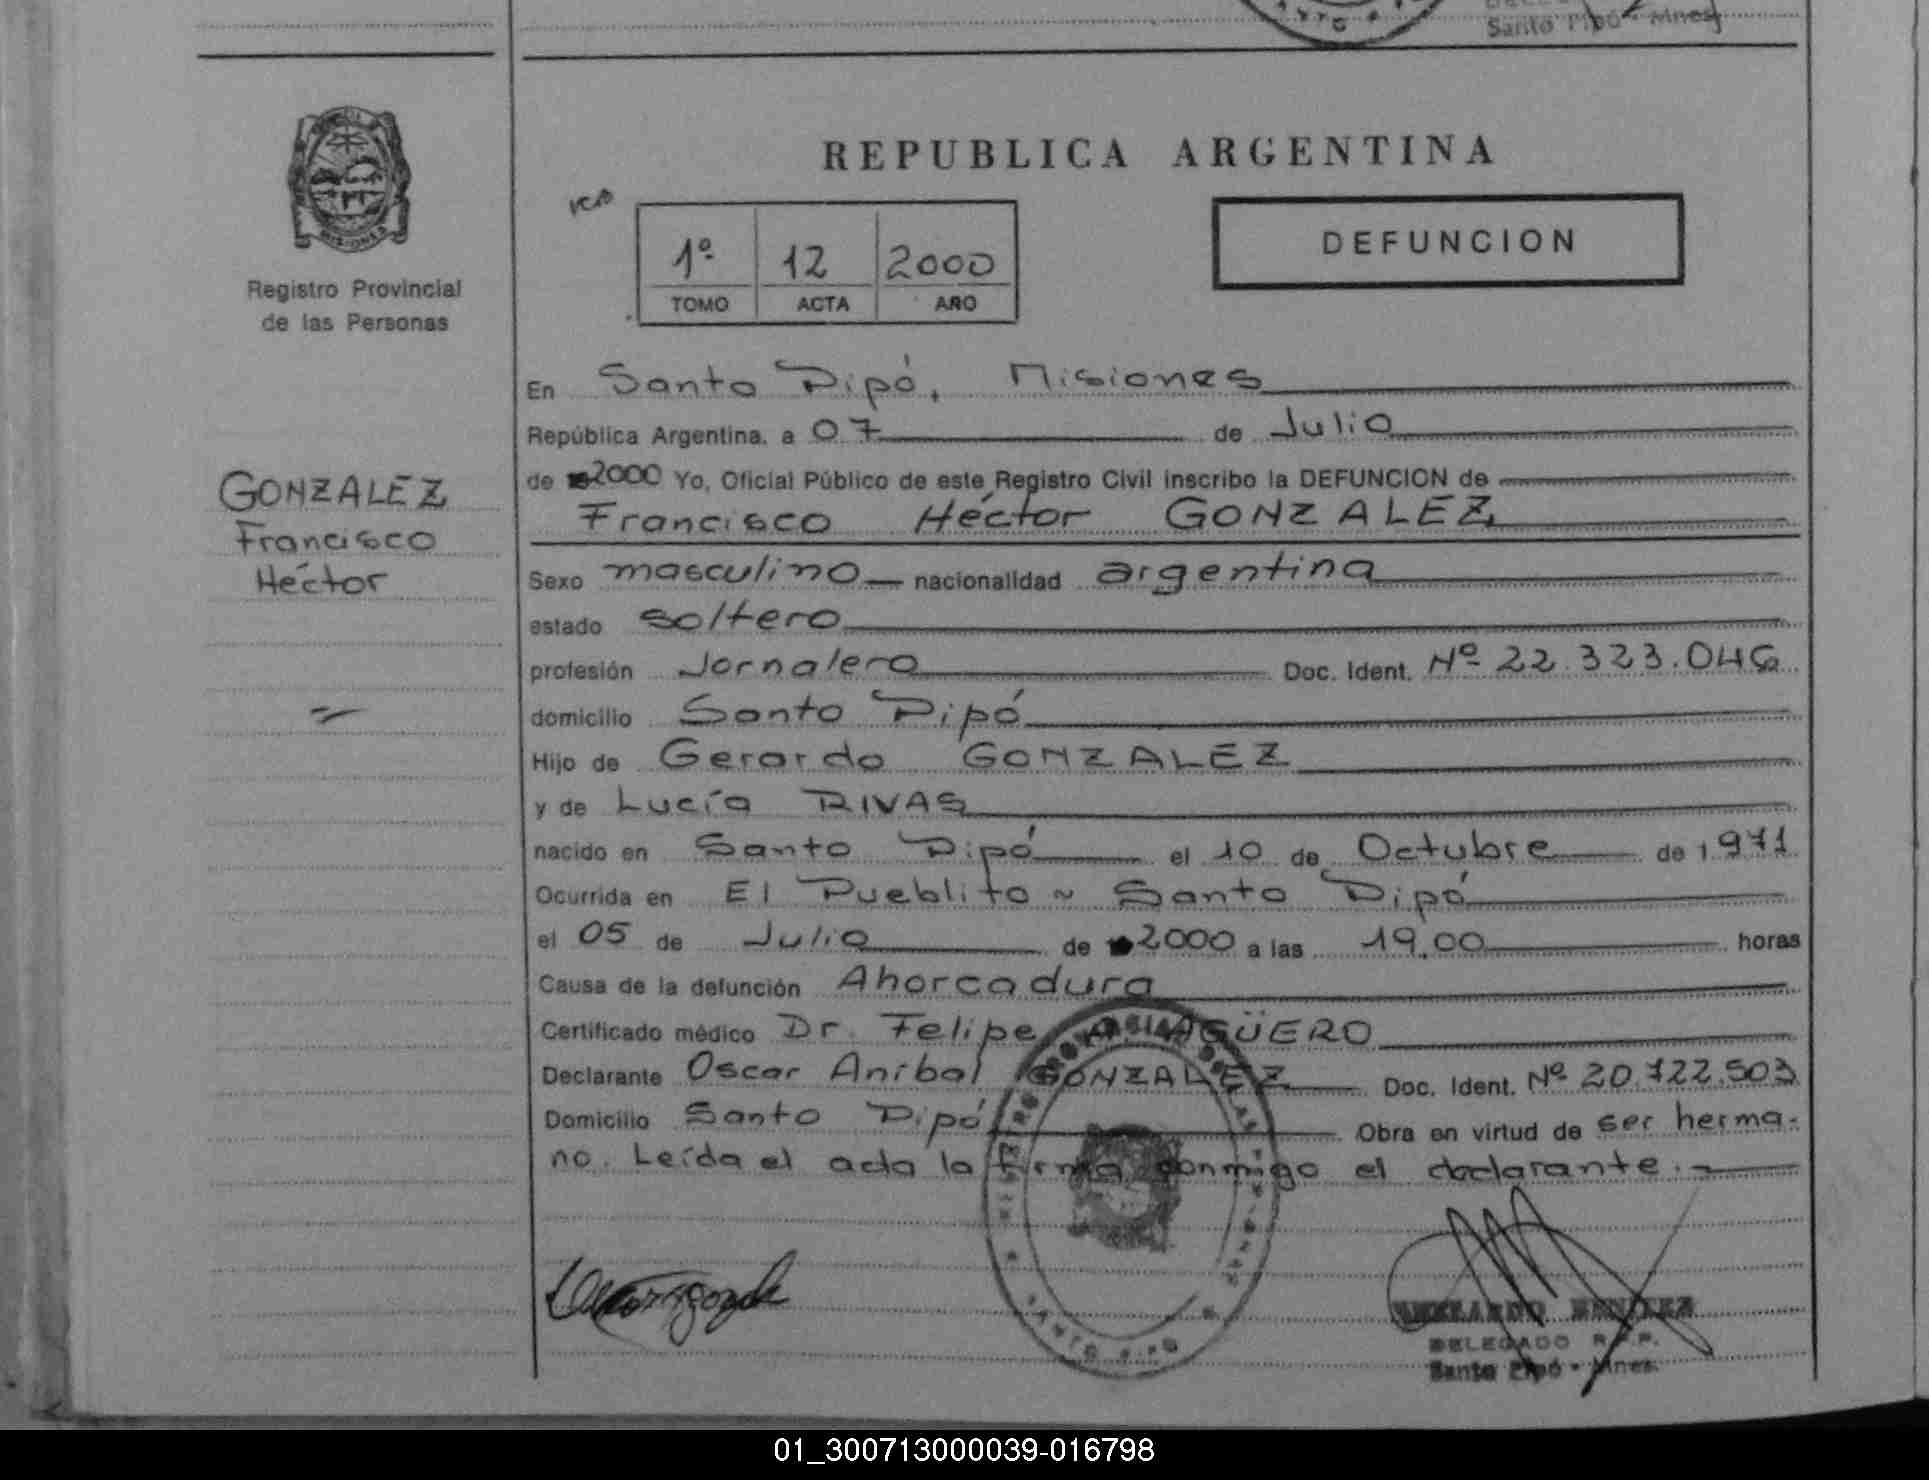 Santo Pipó - Mnes
REPUBLICA ARGENTINA
DEFUNCION
1º 12 2000
TOMO ACTA AÑO
MISIONES
Registro Provincial
de las Personas
GONZALEZ
Francisco
Héctor
En Santo Pipó, Misiones
República Argentina, a 07 de Julio
de 2000 Yo, Oficial Público de este Registro Civil inscribo la DEFUNCION de
Francisco Héctor GONZALEZ
Sexo masculino nacionalidad argentina
estado soltero
profesión Jornalero Doc. Ident. Nº 22.323.046
domicilio Santo Pipó
Hijo de Gerardo GONZALEZ
y de Lucía RIVAS
nacido en Santo Pipó el 10 de Octubre de 1971
Ocurrida en El Pueblito ~ Santo Pipó
el 05 de Julio de 2000 a las 19,00 horas
Causa de la defunción Ahorcadura
Certificado médico Dr. Felipe A. AGÜERO
Declarante Oscar Aníbal GONZALEZ Doc. Ident. Nº 20.722.503
Domicilio Santo Pipó Obra en virtud de ser herma-
no. Leída el acta la firma conmigo el declarante.-
BENITEZ
DELEGADO R.P.P.
Santo Pipó - Mnes.
01_300713000039-016798